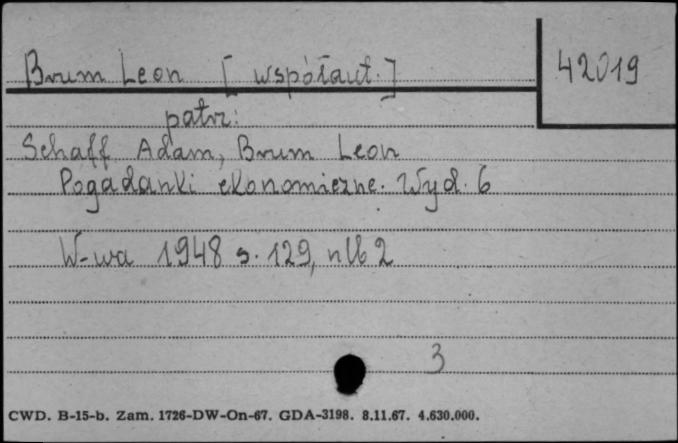 Brum Leon [współaut.]
42019
patrz:
Schaff Adam, Brum Leon
Pogadanki ekonomiczne. Wyd. 6
W-wa 1948 s. 129, nlb 2
3
CWD. B-15-b. Zam. 1726-DW-On-67. GDA-3198. 8.11.67. 4.630.000.